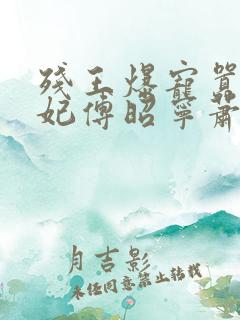 残王爆宠嚣
妃傅昭宁萧
月吉影
未经同意禁止转载